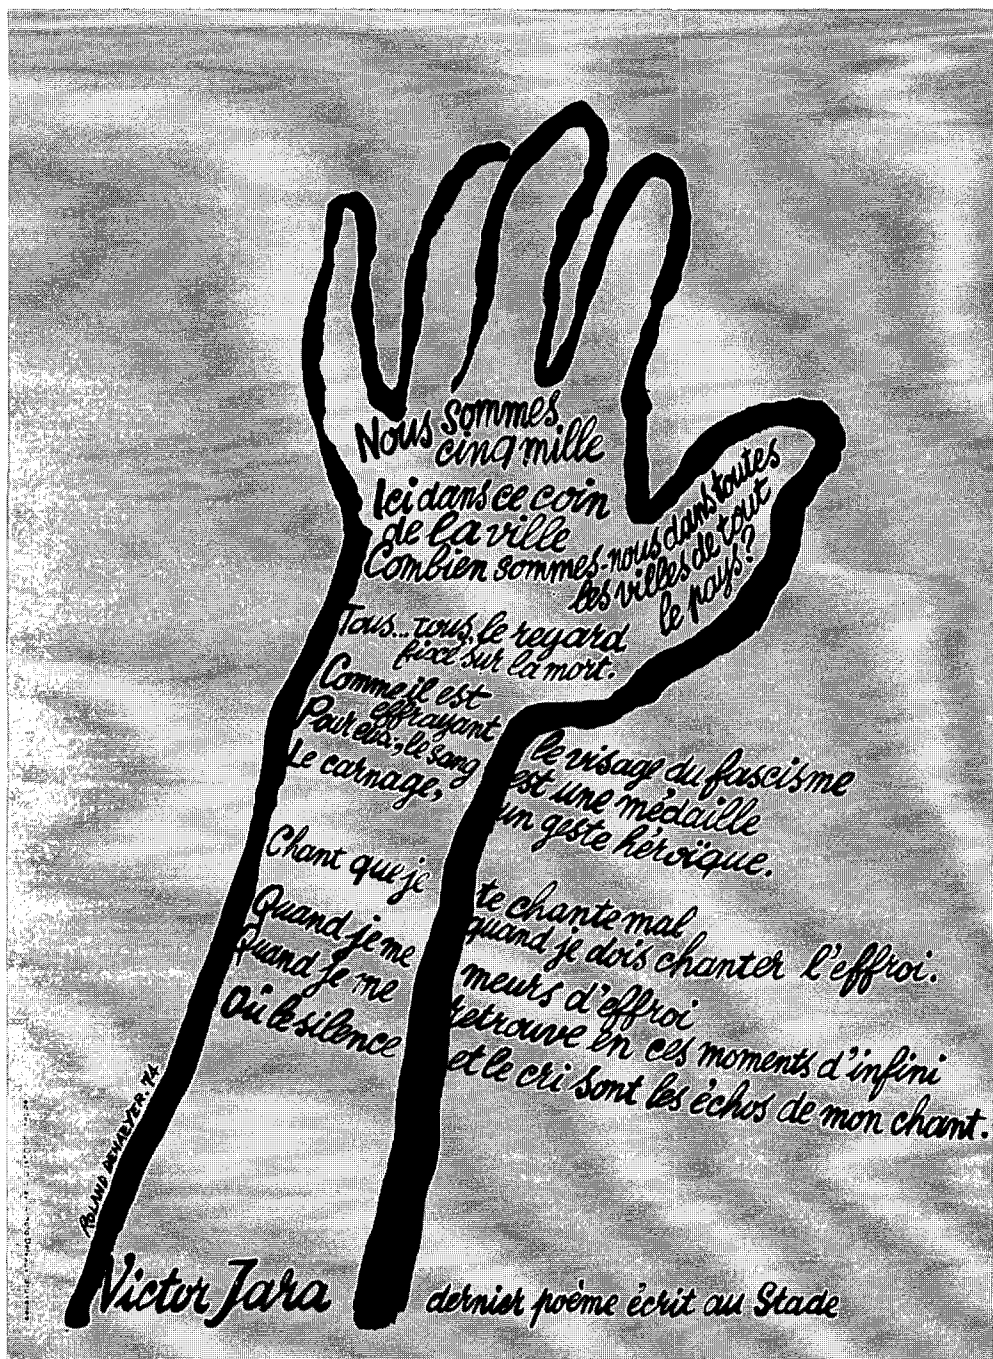 Nous sommes
cinq mille
Ici dans ce coin
de la ville
Combien sommes-nous dans toutes
les villes de tout
le pays?
Tous... tous, le regard
fixé sur la mort.
Comme il est effrayant le visage du fascisme
Pour eux, le sang est une médaille
Le carnage, un geste héroïque.
Chant que je te chante mal
quand je dois chanter l'effroi.
Quand je me meurs d'effroi
Quand je me retrouve en ces moments d'infini
Où le silence et le cri sont les échos de mon chant.
ROLAND DEHARYER.74
Victor Jara dernier poème écrit au Stade